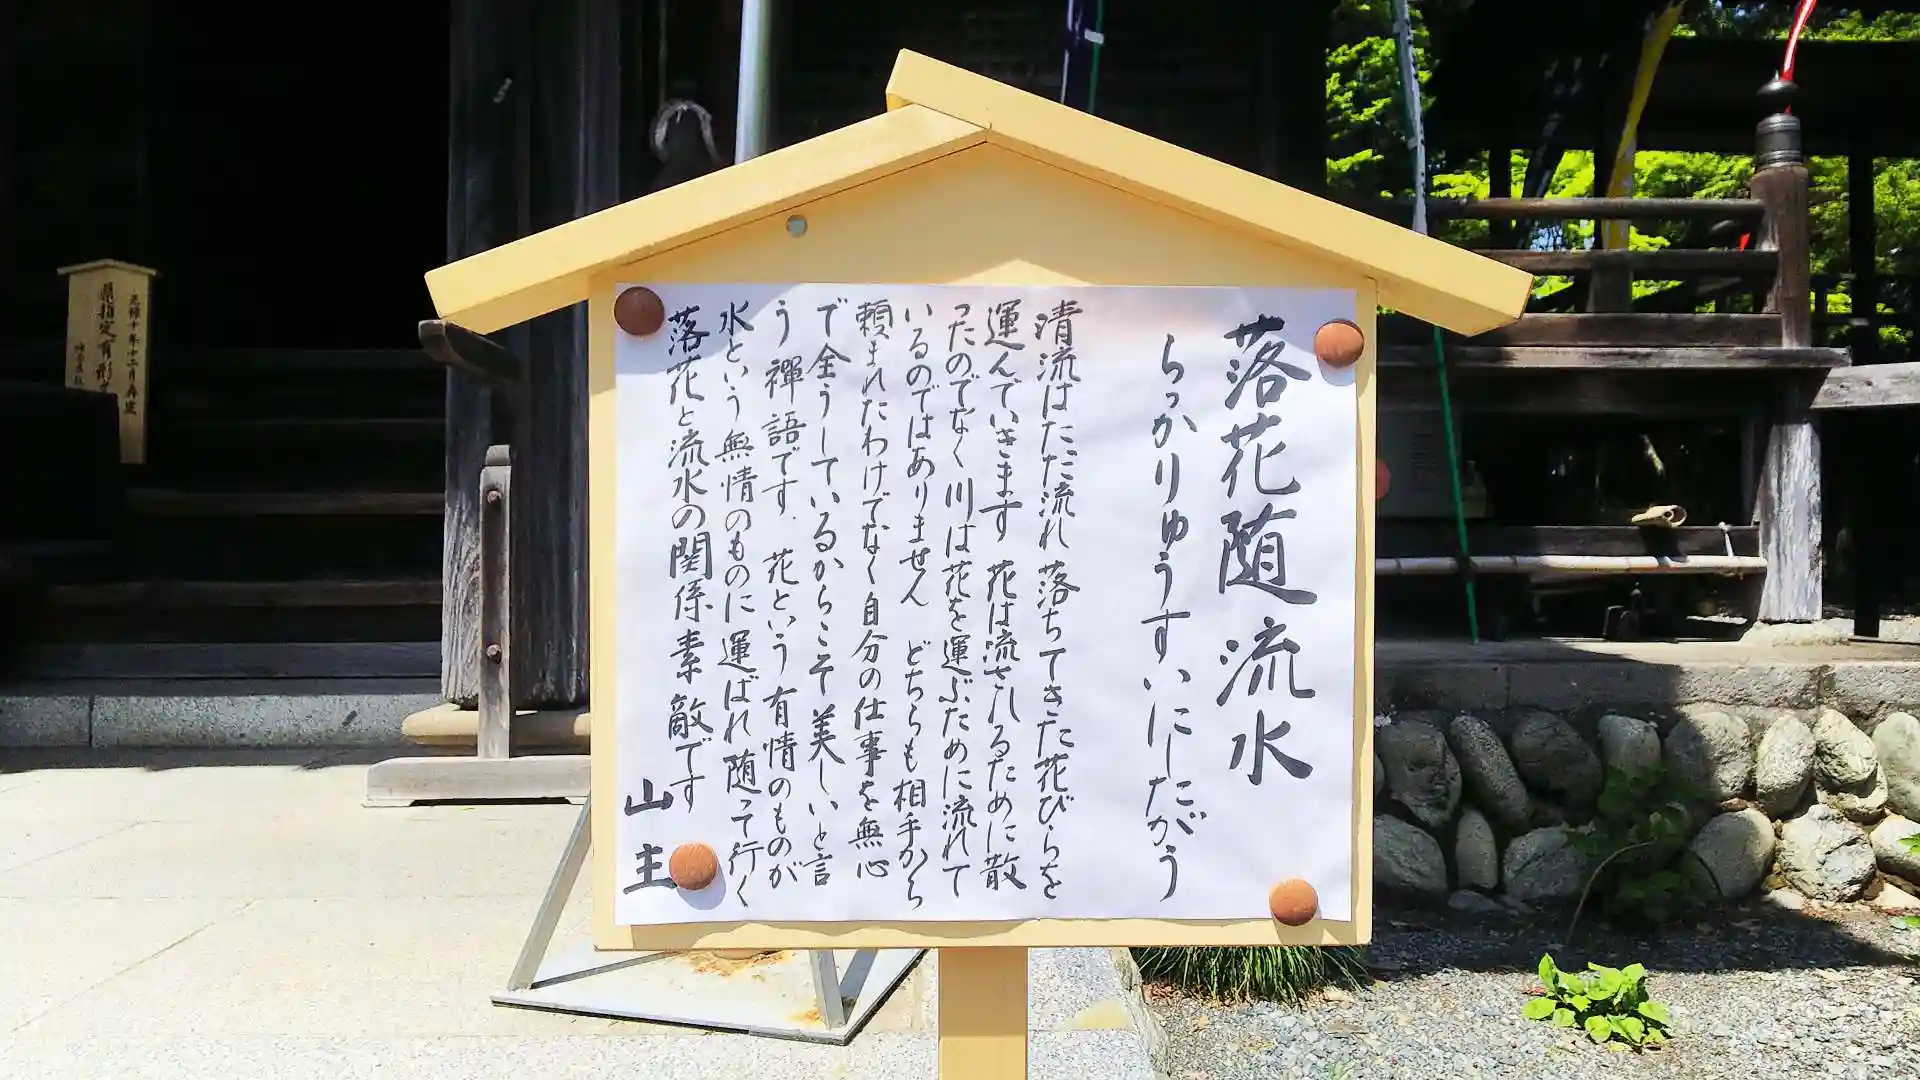 落花随流水
らっかりゅうすいにしたがう
清流はただ流れ 落ちてきた花びらを
運んでいきます 花は流されるために散
ったのでなく川は花を運ぶために流れて
いるのではありません どちらも相手から
頼まれたわけでなく自分の仕事を無心
で全うしているからこそ美しいと言
う禅語です. 花という有情のものが
水という無情のものに運ばれ随って行く
落花と流水の関係素敵です
山主
元禄十年十二月再建
県指定有形